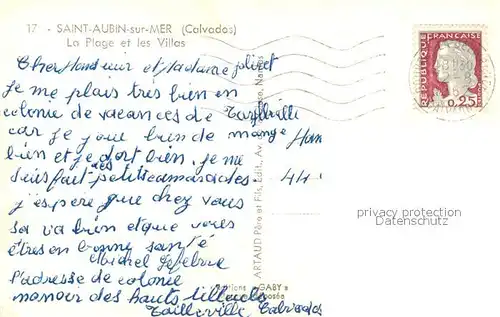 17 - SAINT-AUBIN-sur-MER (Calvados)
La Plage et les Villas
Cher Monsieur et Madame jolivet
Je me plais très bien en
colonie de vacances de Tailleville
car je joue bien je mange
bien et je dort bien. je me
suis fait des petits camarades.
j'espère que chez vous
sa va bien et que vous
êtes en bonne santé
Michel Lefebvre
l'adresse de colonie
manoir des hauts tilleuls
Tailleville, Calvados
44
ARTAUD Père et Fils, Édit., Av.
"GABY"
RÉPUBLIQUE FRANÇAISE
0,25
privacy protection
Datenschutz